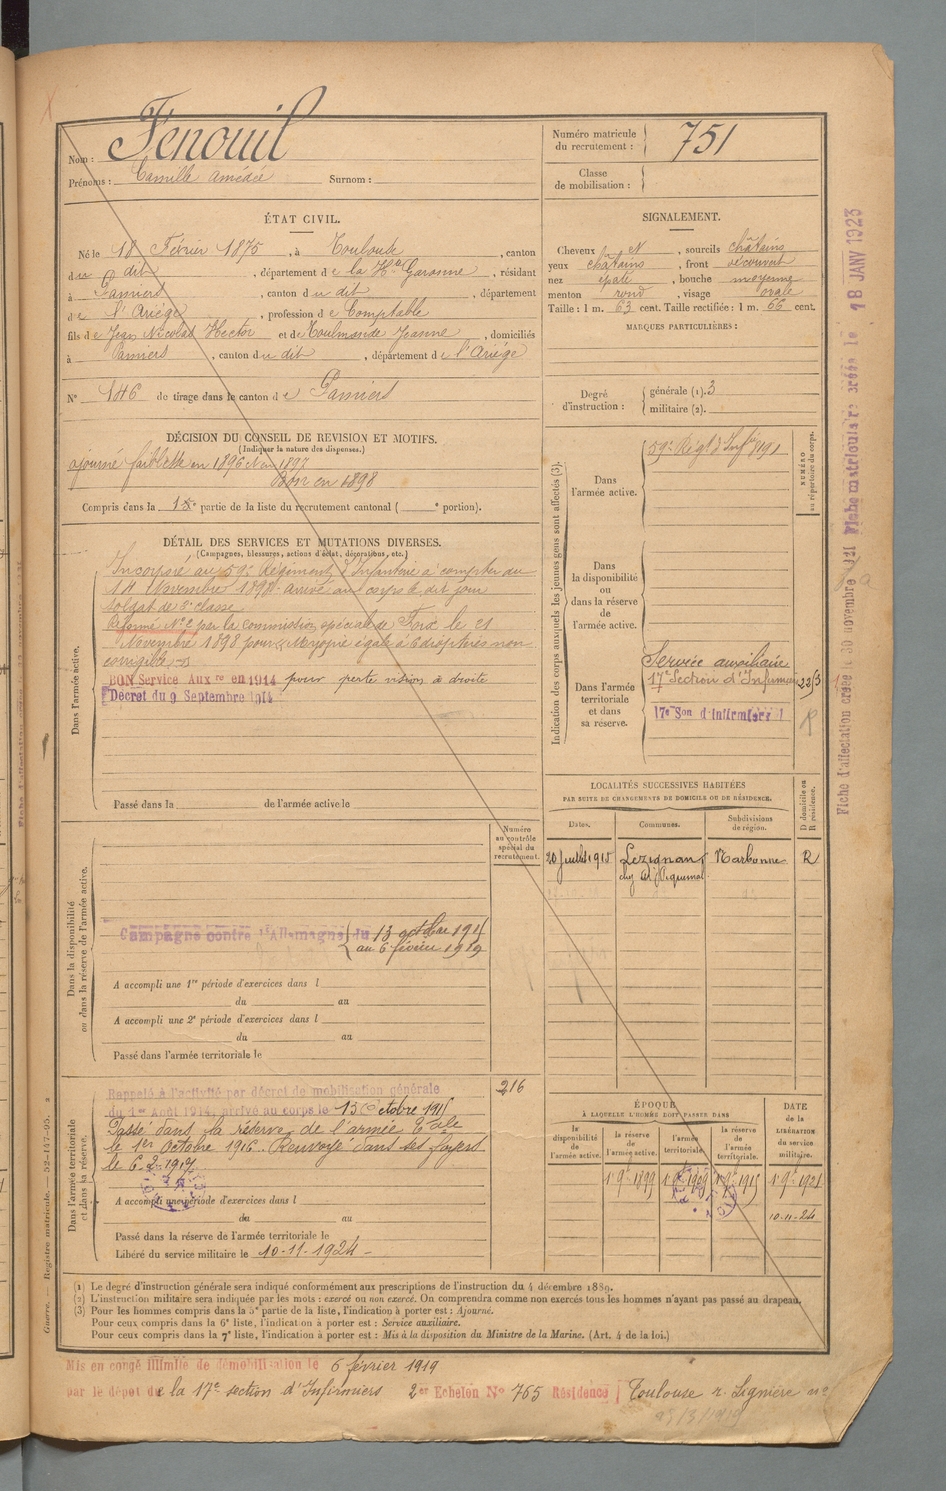 Nom : Fenouil
Prénoms : Camille Amédée Surnom :
Numéro matricule du recrutement : 751
Classe de mobilisation :
ÉTAT CIVIL.
Né le 18 Février 1875, à Toulouse, canton
du dit, département de la Hte Garonne, résidant
à Pamiers, canton du dit, département
de l'Ariège, profession de Comptable
fils de Jean Nicolas Hector et de Toulmonde Jeanne, domiciliés
à Pamiers, canton du dit, département de l'Ariège
N° 146 de tirage dans le canton de Pamiers
SIGNALEMENT.
Cheveux N, sourcils châtains
yeux châtains, front découvert
nez épaté, bouche moyenne
menton rond, visage ovale
Taille : 1 m. 63 cent. Taille rectifiée : 1 m. 66 cent.
MARQUES PARTICULIÈRES :
Degré d'instruction : générale (1). 3
militaire (2).
DÉCISION DU CONSEIL DE REVISION ET MOTIFS.
(Indiquer la nature des dispenses.)
ajourné faiblesse en 1896 et en 1897
Bon en 1898
Compris dans la 1re partie de la liste du recrutement cantonal ( e portion).
DÉTAIL DES SERVICES ET MUTATIONS DIVERSES.
(Campagnes, blessures, actions d'éclat, décorations, etc.)
Dans l'armée active.
Incorporé au 59e Régiment d'Infanterie à compter du
14 Novembre 1898 arrivé au corps le dit jour
soldat de 2e classe
Réformé N° 2 par la commission spéciale de Foix le 21
Novembre 1898 pour Myopie égale à 6 dioptries non
corrigible
BON Service Auxre en 1914 pour perte vision à droite
Décret du 9 Septembre 1914
Passé dans la de l'armée active le
Indication des corps auxquels les jeunes gens sont affectés (3).
NUMÉRO au répertoire du corps.
Dans l'armée active. 59e Régt d'Infie
Dans la disponibilité ou dans la réserve de l'armée active.
Dans l'armée territoriale et dans sa réserve. Service auxiliaire
17e Section d'Infirmiers
17e Son d'Infirmiers
LOCALITÉS SUCCESSIVES HABITÉES
PAR SUITE DE CHANGEMENTS DE DOMICILE OU DE RÉSIDENCE.
D domicile ou R résidence.
Dates. Communes. Subdivisions de région.
20 Juillet 1915 Lezignan Narbonne R
Dans la disponibilité ou dans la réserve de l'armée active.
Numéro au contrôle spécial du recrutement.
Campagne contre l'Allemagne du 13 octobre 1915
au 6 février 1919
A accompli une 1re période d'exercices dans l
du au
A accompli une 2e période d'exercices dans l
du au
Passé dans l'armée territoriale le
Dans l'armée territoriale et dans sa réserve.
216
Rappelé à l'activité par décret de mobilisation générale
du 1er Août 1914, arrivé au corps le 13 Octobre 1915
Passé dans la réserve de l'armée Tale
le 1er Octobre 1916. Renvoyé dans ses foyers
le 6-2-1919.
A accompli une période d'exercices dans l
du au
Passé dans la réserve de l'armée territoriale le
Libéré du service militaire le 10-11-1924
ÉPOQUE
À LAQUELLE L'HOMME DOIT PASSER DANS
la disponibilité de l'armée active. la réserve de l'armée active. l'armée territoriale. la réserve de l'armée territoriale.
DATE de la LIBÉRATION du service militaire.
1er 9bre 1899 1er 9bre 1909 1er 9bre 1915 1er 9bre 1921
10-11-24
(1) Le degré d'instruction générale sera indiqué conformément aux prescriptions de l'instruction du 4 décembre 1889.
(2) L'instruction militaire sera indiquée par les mots : exercé ou non exercé. On comprendra comme non exercés tous les hommes n'ayant pas passé au drapeau.
(3) Pour les hommes compris dans la 5e partie de la liste, l'indication à porter est : Ajourné.
Pour ceux compris dans la 6e liste, l'indication à porter est : Service auxiliaire.
Pour ceux compris dans la 7e liste, l'indication à porter est : Mis à la disposition du Ministre de la Marine. (Art. 4 de la loi.)
Mis en congé illimité de démobilisation le 6 février 1919
par le dépôt de la 17e section d'Infirmiers 2er Echelon N° 765 Résidence Toulouse r. Lignière
Guerre. — Registre matricule. — 52-147-95.
Fiche d'affectation créée le 30 novembre
Fiche matriculaire créée le 18 JANV 1923